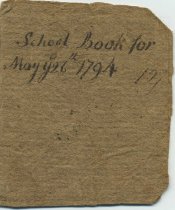 School Book for
May ye 26th 1794